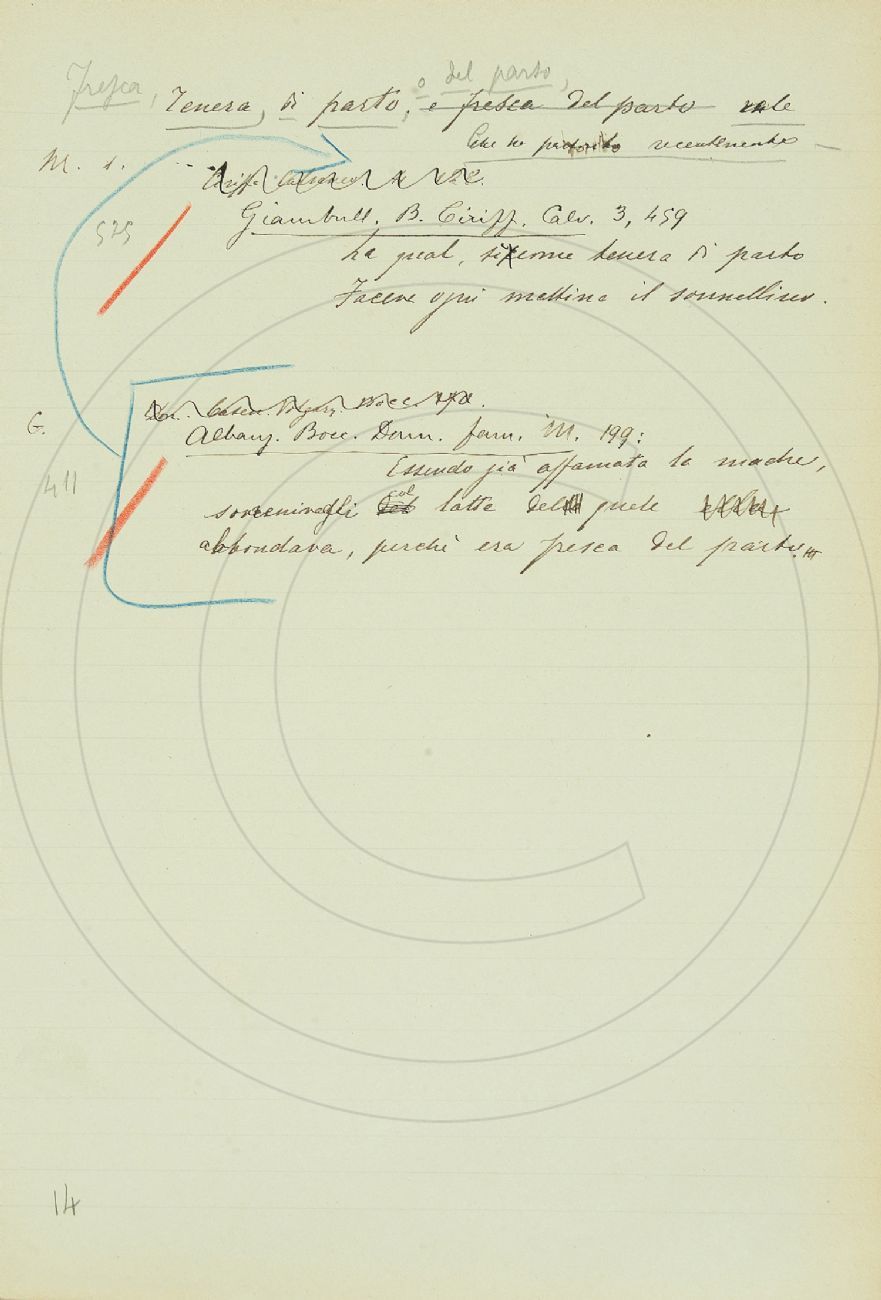 Fresca, o del parto,
Tenera, di parto, e fresca del parto vale
Che ha partorito recentemente —
M. 1.
Giambull. B. Ciriff. Calv. 3, 459
575
La qual, siccome tenera di parto
Faceva ogni mattina il sonnellino.
G.
Albanz. Bocc. Donn. fam. M. 199:
Essendo già affamata la madre,
411
sovvenivagli col latte del quale
abbondava, perchè era fresca del parto.
14